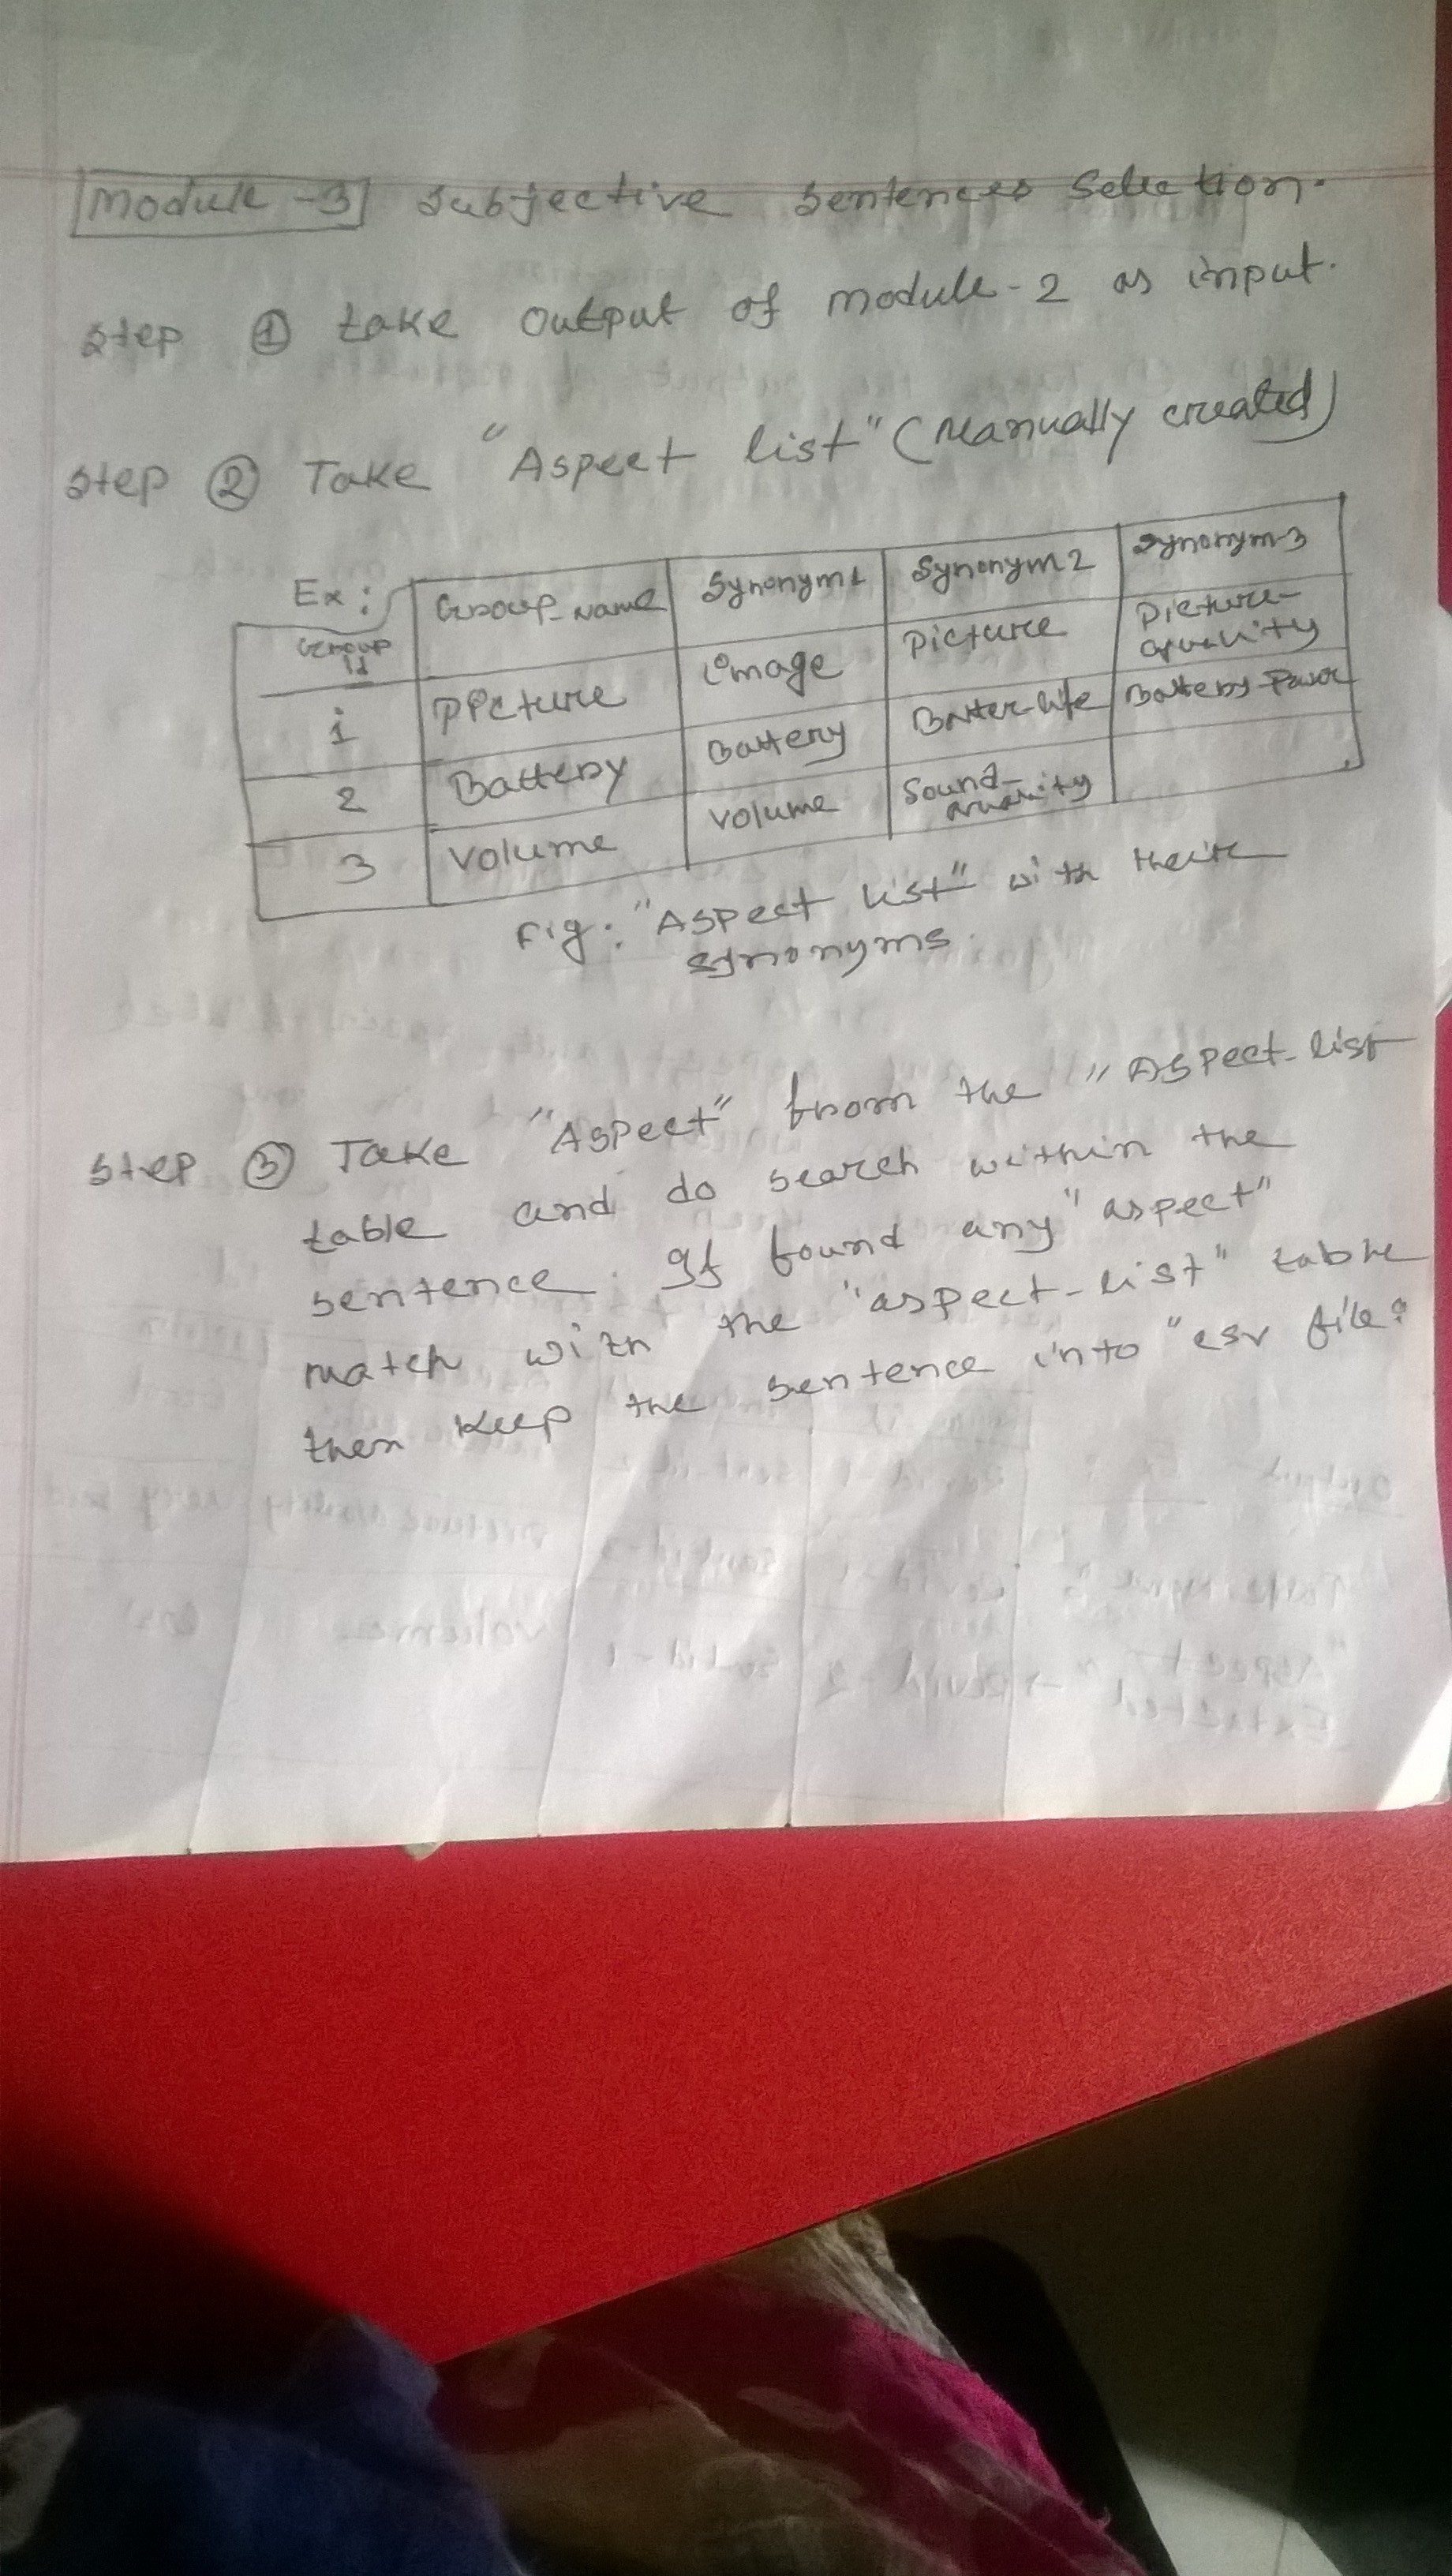 Module-3 Subjective Sentences Selection.
Step ① take output of module-2 as input.
Step ② Take "Aspect list" (Manually created)
Ex:
Group Id Group_Name Synonym1 Synonym2 Synonym3
1 Picture image Picture Picture-quality
2 Battery Battery Batter-life Battery-Power
3 Volume Volume Sound-quality
Fig: "Aspect list" with their
synonyms.
Step ③ Take "Aspect" from the "Aspect-list
table and do search within the
sentence. If found any "aspect"
match with the "aspect-list" table
then keep the sentence into "csv file.